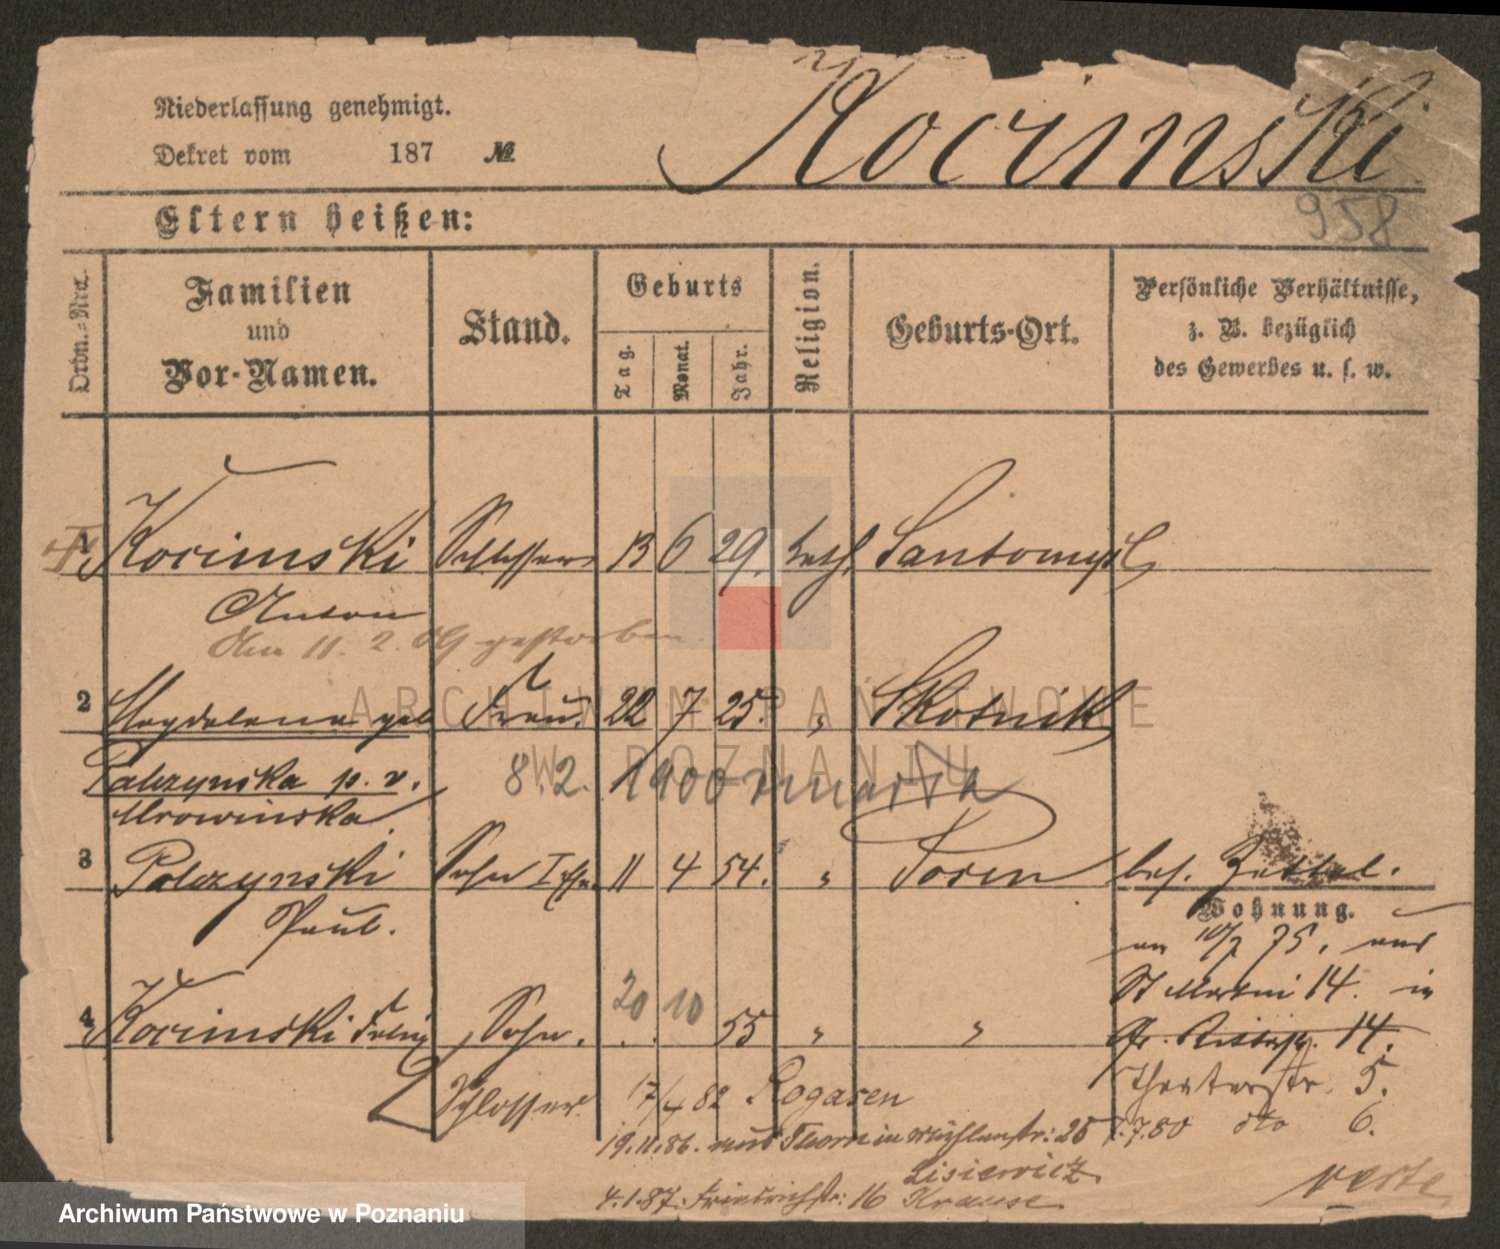 Niederlassung genehmigt.
Dekret vom 187 №
Kocimski
958
Eltern heißen:
Ordn.-Nro.
Familien
und
Vor-Namen.
Stand.
Geburts
Tag.
Monat.
Jahr.
Religion.
Geburts-Ort.
Persönliche Verhältnisse,
z. B. bezüglich
des Gewerbes u. s. w.
1 Kocimski Schlosser 13 6 29. kath. Santomysl
Anton
Am 11. 2. gestorben
2 Magdalena geb Frau. 22 7 25. " Skotnik
p. v.
8.2. 1900 umarła
Mrowinska
3 Polczynski Sohn I Ehe 11 4 54. " Posen bes. Zettel.
Wohnung.
Paul.
am 10/7 75, aus
St Martin 14. in
4 Kocimski Felix Sohn. 20 10 55 " " Gr. Ritterstr. 14.
Schlosser 17/4 82 Rogasen Theaterstr. 5.
19.11.86. aus Thorn in Mühlenstr: 25 7.80 dto 6.
Lisiewicz
4.1.87. Friedrichstr: 16 Krause
verte
ARCHIWUM PAŃSTWOWE
W POZNANIU
Archiwum Państwowe w Poznaniu